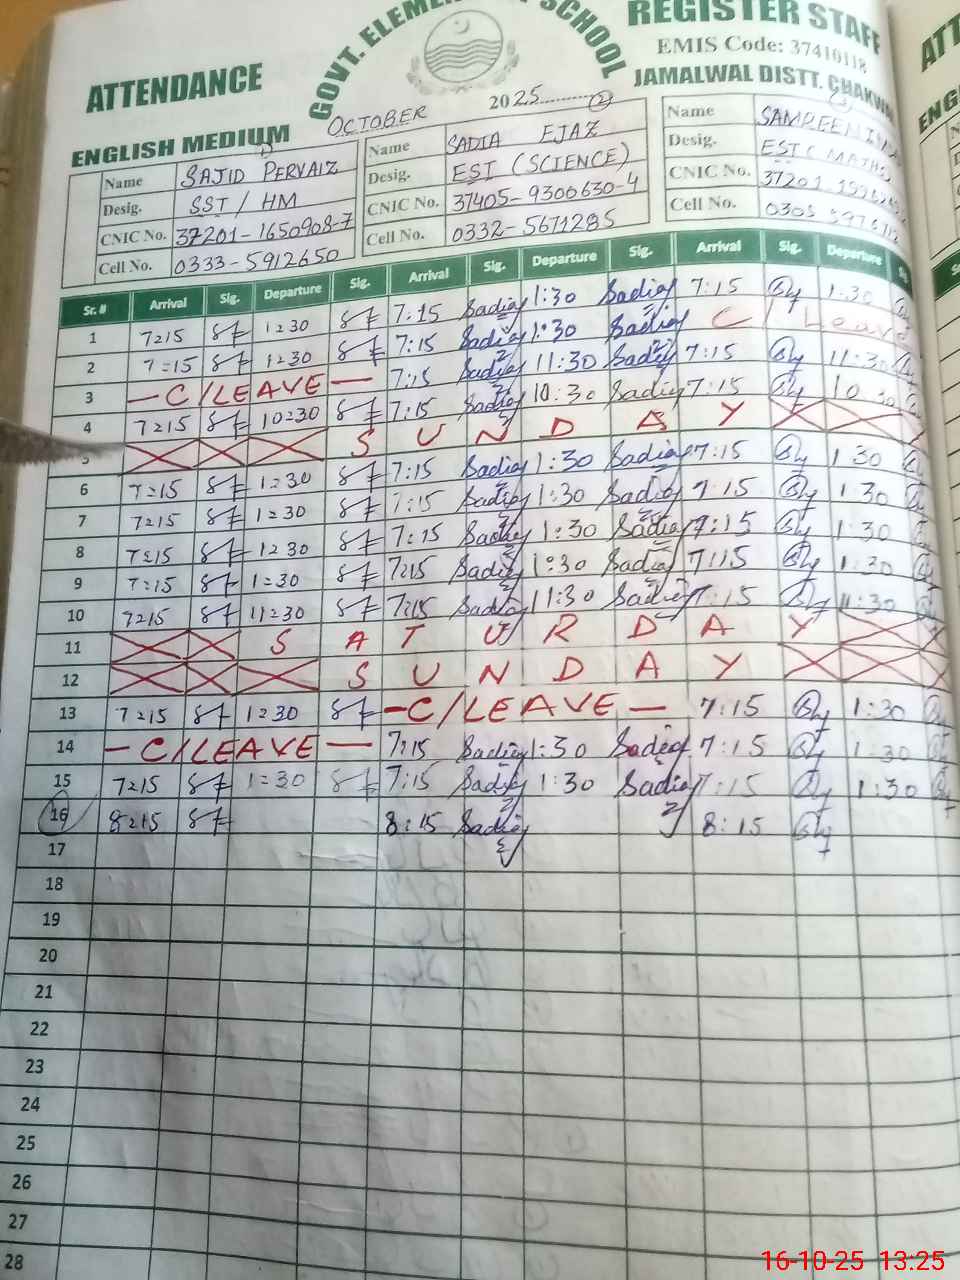 GOVT. ELEMENTARY SCHOOL
ATTENDANCE REGISTER STAFF
EMIS Code: 37410118
ENGLISH MEDIUM JAMALWAL DISTT. CHAKWAL
OCTOBER 2025 2
Name SAJID PERVAIZ Name SADIA EJAZ Name SAMREEN
Desig. SST / HM Desig. EST (SCIENCE) Desig. EST ( MATHS
CNIC No. 37201-1650908-7 CNIC No. 37405-9300630-4 CNIC No. 37201
Cell No. 0333-5912650 Cell No. 0332-5671285 Cell No. 0305
Sr. # Arrival Sig. Departure Sig. Arrival Sig. Departure Sig. Arrival Sig. Departure
1 7:15 1:30 7:15 Sadia 1:30 Sadia 7:15 1:30
2 7:15 1:30 7:15 Sadia 1:30 Sadia C / Leave
3 - C/LEAVE - 7:15 Sadia 11:30 Sadia 7:15 11:30
4 7:15 10:30 7:15 Sadia 10:30 Sadia 7:15 10:30
5 SUNDAY
6 7:15 1:30 7:15 Sadia 1:30 Sadia 7:15 1:30
7 7:15 1:30 7:15 Sadia 1:30 Sadia 7:15 1:30
8 7:15 1:30 7:15 Sadia 1:30 Sadia 7:15 1:30
9 7:15 1:30 7:15 Sadia 1:30 Sadia 7:15 1:30
10 7:15 11:30 7:15 Sadia 11:30 Sadia 7:15 11:30
11 SATURDAY
12 SUNDAY
13 7:15 1:30 - C/LEAVE - 7:15 1:30
14 - C/LEAVE - 7:15 Sadia 1:30 Sadia 7:15 1:30
15 7:15 1:30 7:15 Sadia 1:30 Sadia 7:15 1:30
16 8:15 8:15 Sadia 8:15
17
18
19
20
21
22
23
24
25
26
27
28
16-10-25 13:25